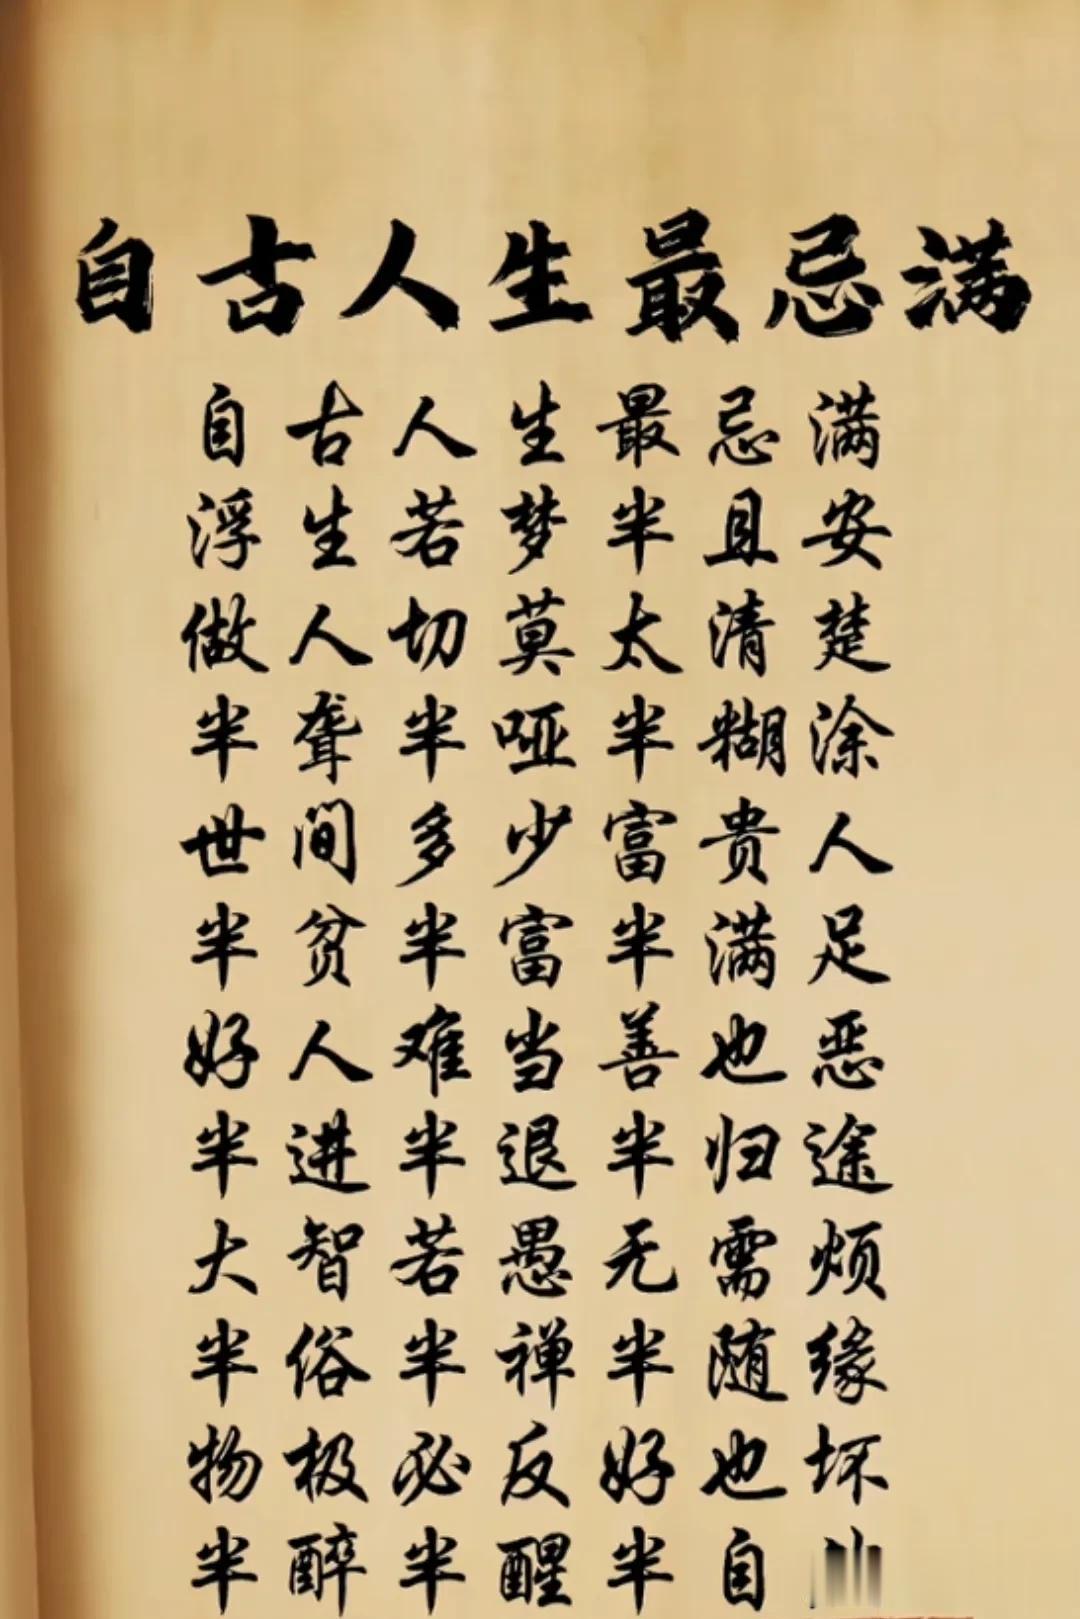 自古人生最忌满
自古人生最忌满
浮生若梦半且安
做人切莫太清楚
半聋半哑半糊涂
世间多少富贵人
半贫半富半满足
好人难当善也恶
半进半退半归途
大智若愚无需烦
半俗半禅半随缘
物极必反好也坏
半醉半醒半自